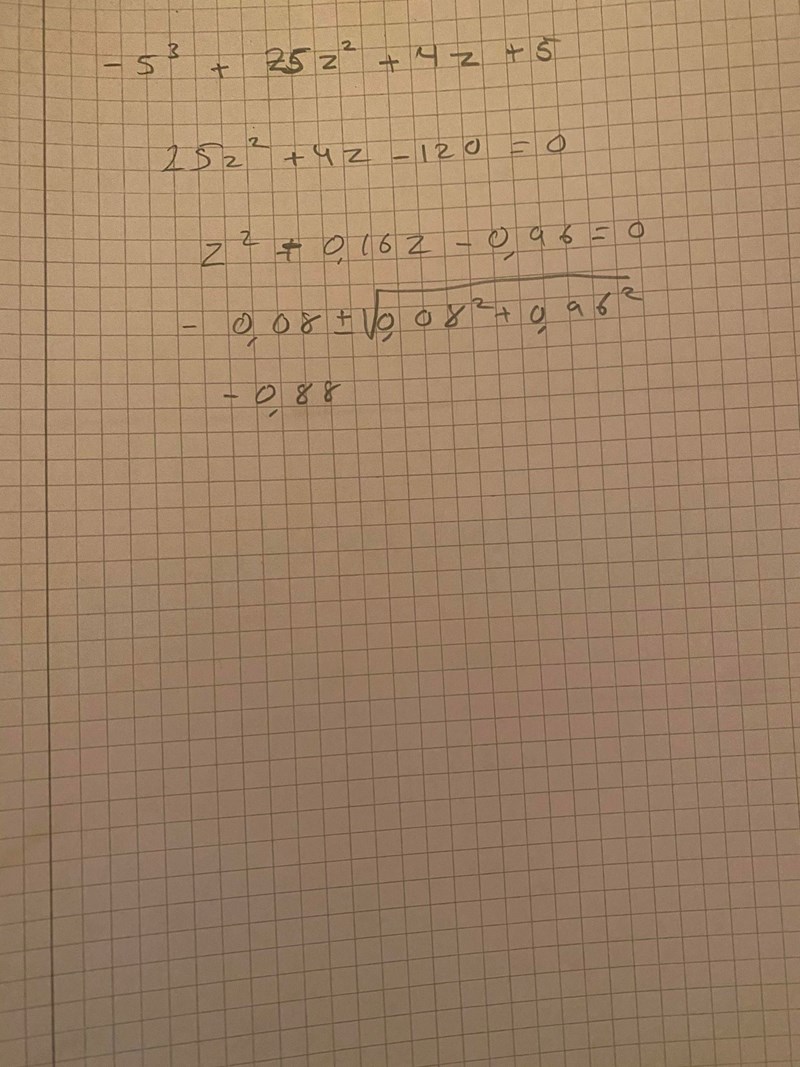 -5³ + 25z² + 4z + 5
25z² + 4z - 120 = 0
z² + 0,16z - 0,96 = 0
- 0,08 ± √0,08² + 0,96²
- 0,88